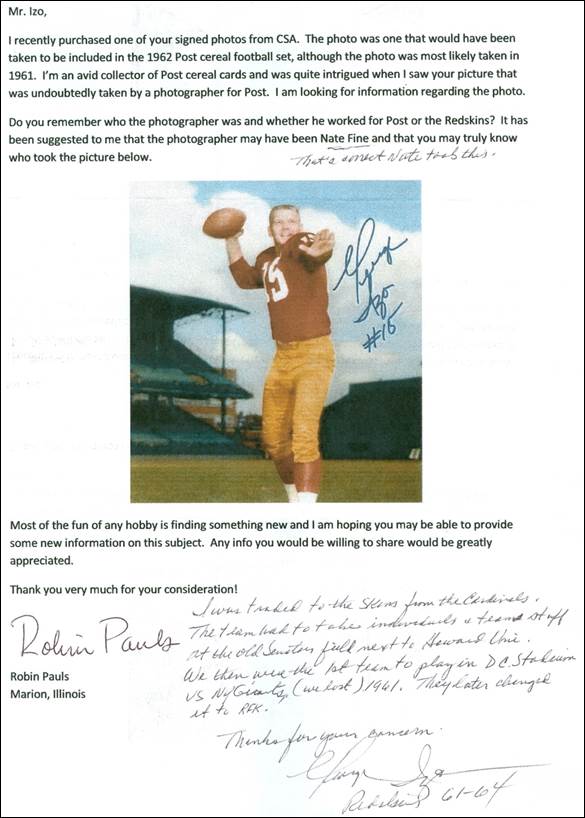 Mr. Izo,
I recently purchased one of your signed photos from CSA. The photo was one that would have been
taken to be included in the 1962 Post cereal football set, although the photo was most likely taken in
1961. I'm an avid collector of Post cereal cards and was quite intrigued when I saw your picture that
was undoubtedly taken by a photographer for Post. I am looking for information regarding the photo.
Do you remember who the photographer was and whether he worked for Post or the Redskins? It has
been suggested to me that the photographer may have been Nate Fine and that you may truly know
who took the picture below.
That's correct Nate took this.
15
George
Izo
#15
Most of the fun of any hobby is finding something new and I am hoping you may be able to provide
some new information on this subject. Any info you would be willing to share would be greatly
appreciated.
Thank you very much for your consideration!
I was traded to the Skins from the Cardinals.
The team had to take individuals & team stuff
at the old Senators field next to Howard Univ.
We then were the 1st team to play in DC Stadium
vs NY Giants, (we lost) 1961. They later changed
it to RFK.
Robin Pauls
Robin Pauls
Marion, Illinois
Thanks for your concern.
George Izo
Redskins 61-64